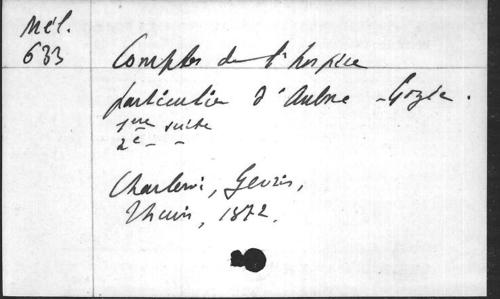 Mél.
633
Comptes de l'hospice
particulier d'Aulne-Gozée.
1ère suite
2e - -
Charleroi,
Thuin, 1872.